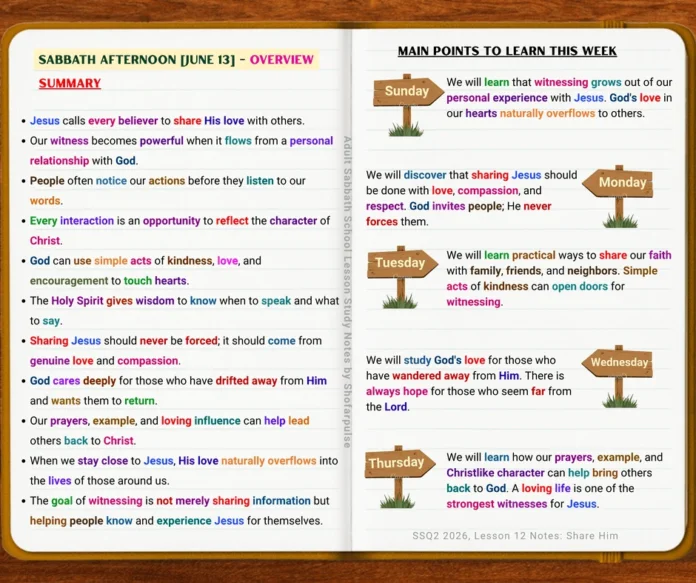 SABBATH AFTERNOON [JUNE 13] - OVERVIEW
SUMMARY
• Jesus calls every believer to share His love with others.
• Our witness becomes powerful when it flows from a personal
relationship with God.
• People often notice our actions before they listen to our
words.
• Every interaction is an opportunity to reflect the character of
Christ.
• God can use simple acts of kindness, love, and
encouragement to touch hearts.
• The Holy Spirit gives wisdom to know when to speak and what
to say.
• Sharing Jesus should never be forced; it should come from
genuine love and compassion.
• God cares deeply for those who have drifted away from Him
and wants them to return.
• Our prayers, example, and loving influence can help lead
others back to Christ.
• When we stay close to Jesus, His love naturally overflows into
the lives of those around us.
• The goal of witnessing is not merely sharing information but
helping people know and experience Jesus for themselves.
Adult Sabbath School Lesson Study Notes by Shofarpulse
MAIN POINTS TO LEARN THIS WEEK
Sunday
We will learn that witnessing grows out of our
personal experience with Jesus. God's love in
our hearts naturally overflows to others.
We will discover that sharing Jesus should
be done with love, compassion, and
respect. God invites people; He never
forces them.
Monday
Tuesday
We will learn practical ways to share our faith
with family, friends, and neighbors. Simple
acts of kindness can open doors for
witnessing.
We will study God's love for those who
have wandered away from Him. There is
always hope for those who seem far from
the Lord.
Wednesday
Thursday
We will learn how our prayers, example, and
Christlike character can help bring others
back to God. A loving life is one of the
strongest witnesses for Jesus.
SSQ2 2026, Lesson 12 Notes: Share Him